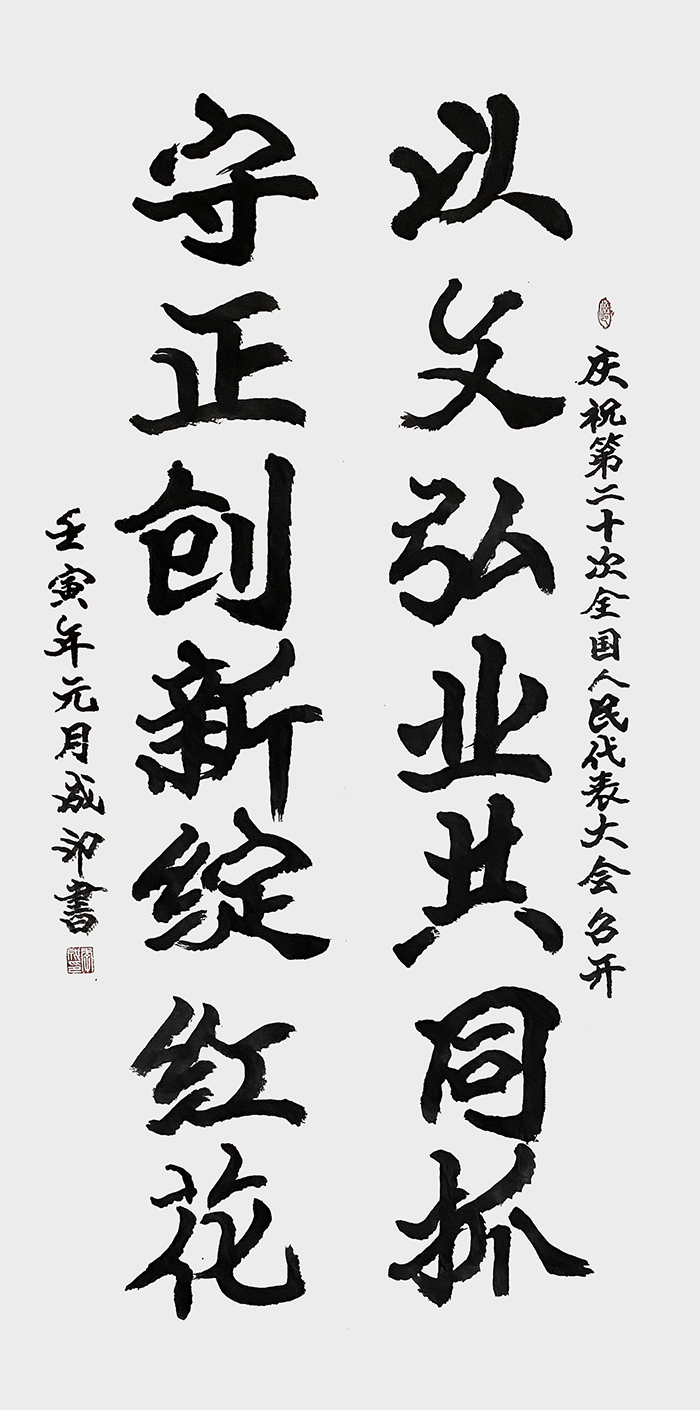 庆祝第二十次全国人民代表大会召开
以文弘业共同抓
守正创新绽红花
壬寅年元月成印書